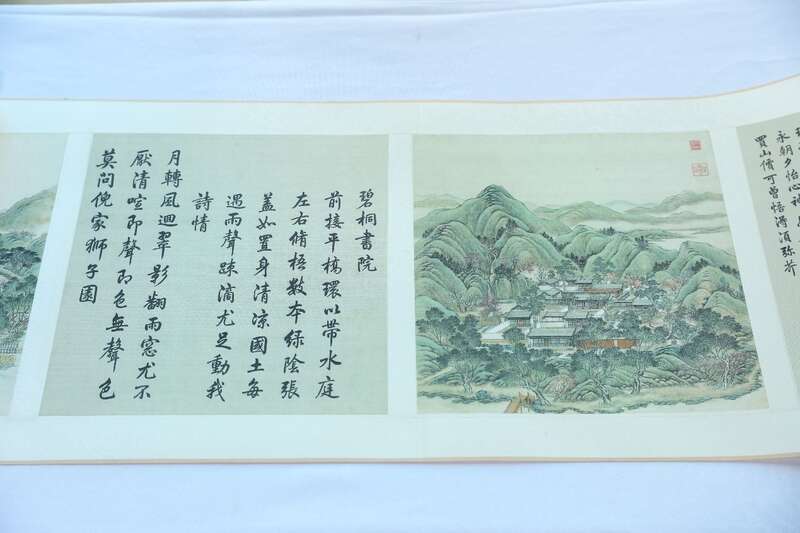 永朝夕怡心神
買山價可曽悟得須弥芥
碧桐書院
前接平橋環以帶水庭
左右脩梧數本綠陰張
蓋如置身清涼國土每
遇雨聲疎滴尤足動我
詩情
月轉風迴翠影翻雨窓尤不
厭清喧即聲即色無聲色
莫問倪家獅子園